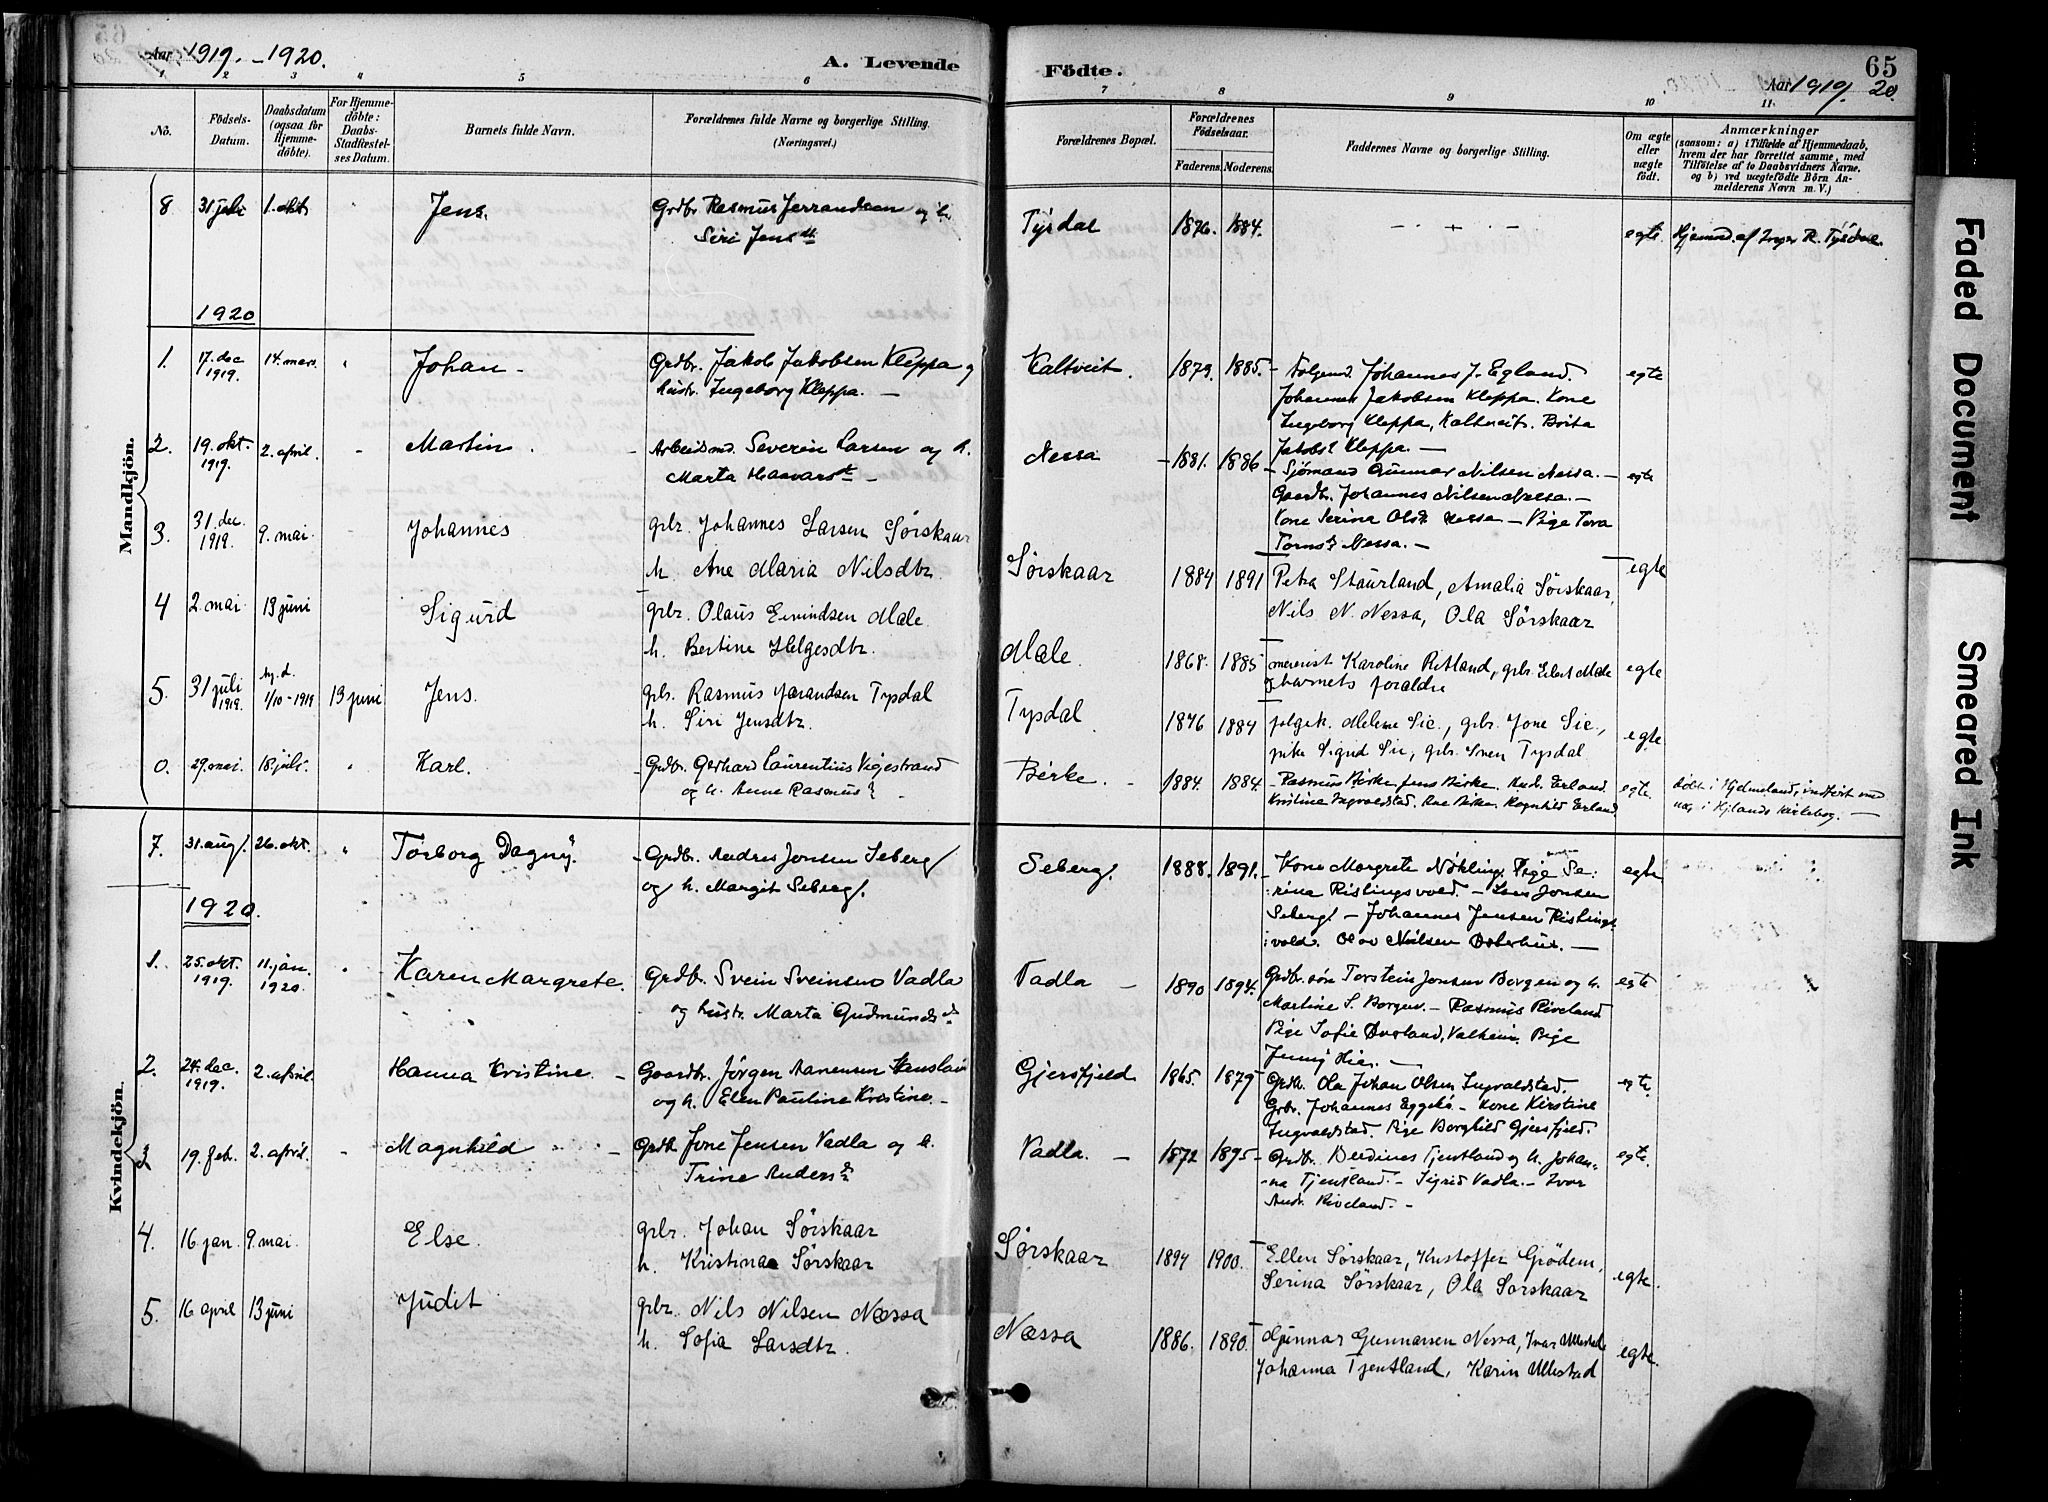 Aar 1919. - 1920.
A. Levende
Födte.
65
Aar 1919. 20.
1 2 3 4 5 6 7 8 9 10 11
No.
Födsels-Datum.
Daabsdatum (ogsaa for Hjemme-döbte).
For Hjemme-döbte: Daabs-Stadfæstel-ses Datum.
Barnets fulde Navn.
Forældrenes fulde Navne og borgerlige Stilling. (Næringsvei.)
Forældrenes Bopæl.
Forældrenes Födselsaar.
Faderens. Moderens.
Faddernes Navne og borgerlige Stilling.
Om ægte eller uægte födt.
Anmærkninger (saasom: a) i Tilfælde af Hjemmedaab, hvem der har forrettet samme, med Tilföielse af to Daabsvidners Navne, og b) ved uægtefödte Börn An-melderens Navn m. V.)
Mandkjön.
8 31 juli 1. okt. " Jens. Grdbr Rasmus Jerrandsen og h. Siri Jensdt Tysdal 1876. 1884. egte. Hjemd. af Inger R. Tysdal.
1920
1. 17. dec 1919. 14. mars " Johan - Grdbr. Jakob Jakobsen Kleppa og hustr. Ingeborg Kleppa. - Kaltveit. 1879. 1885. - Johannes J. Egland. egte
Johannes Jakobsen Kleppa. Kone
Ingeborg Kleppa, Kaltveit. Brita
Jakobst Kleppa. -
2. 19. okt. 1919. 2. april. - Martin. - Arbeidsmd. Severin Larsen og h. Marta Haavarst - Nessa - 1881. 1886 - Sjømand Gunnar Nilsen Nessa. - egte
Gaardbr. Johannes Nilsen Nessa. -
Kone Serina Olsdt. Nessa - Pige Tora
Tornst Nessa. -
3. 31. dec. 1919. 9. mai. - Johannes grbr. Johannes Larsen Sörskaar h. Ane Maria Nilsdtr. Sörskaar 1884 1891 Petra Staurland, Amalia Sörskaar, egte
Nils N. Nessa, Ola Sörskaar
4 2. mai 13 juni Sigurd grbr. Olaus Eivindsen Mæle. h. Bertine Helgesdtr. Mæle. 1868. 1885 Karoline Ritland, grbr. Eilert Mæle egte
og barnets foraldre
5. 31 juli 1919. hj.d. 1/10-1919 13 juni Jens. grbr. Rasmus Jørandsen Tysdal h. Siri Jensdtr. Tysdal 1876 1884 Melene Sie., grbr. Jone Sie., egte
pike Sigrid Sie, grbr. Tysdal
0. 29. mai. 18. juli. " Karl. - Grdbr. Gerhard Laurentius Vigestrand og h. Anne Rasmusdt. Birke. - 1884. 1884. - Rasmus Birke, Jens Birke. And. Erland egte.
Kristine Ingvaldstad. Ane Birke. Ragnhild Erland.
döbt i Hjelmeland, indført med no. i Hjelands kirkebog. -
Kvindekjön.
7. 31. aug. 26. okt. " Torborg Dagny. - Grdbr. Andres Jonsen Seberg og h. Margit Seberg. Seberg. 1888. 1891. - Kone Margrete Nökling. Pige Se- egte
rina Rislingsvold. - Lars Jonsen
Seberg! - Johannes Jensen Rislings-
vold. Olav Nilsen Osterhus. -
1920.
1. 25. okt. 1919. 11. jan. 1920. " Karen Margrete. Grdbr. Svein Sveinsen Vadla og hustr. Marta Gudmundsdt Vadla - 1890 1894. Grdbr. søn Torstein Jonsen Borgen og h. egte
Martine S. Borgen. - Rasmus Riveland
Pige Sofie Valheim. Pige
Jenny Hie. -
2. 24. dec. 1919. 2. april. - Hanna Kristine. - Gaardbr. Jörgen Aanensen og h. Elen Pauline Kristine. - Gjersfjeld 1865. 1879 Grdbr. Ola Johan Olsen Ingvaldstad. egte.
Grbr. Johannes Eggebö. - Kone Kirstine
Ingvaldstad. Pige Borghild Gjersfjeld.
3 19. feb. 2. april. - Magnhild - Grdbr. Jone Jensen Vadla og h. Trine Andersdt Vadla. - 1872 1895 - Grdbr. Berdines Tjentland og h. Johan- egte.
na Tjentland. - Sigrid Vadla. - Ivar
Andr. Riveland. -
4. 16 jan. 9. mai. Else. grbr. Johan Sörskaar h. Kristina Sörskaar Sörskaar 1894 1900. Ellen Sörskaar, Kristoffer Grödem, egte.
Serina Sörskaar, Ola Sörskaar
5. 16 april 13 juni Judit grbr. Nils Nilsen Næssa h. Sofia Larsdtr. Næssa 1886. 1890. Gunnar Gunnarsen Nessa, Ivar Ullestad egte.
Johanna Tjentland, Karin Ullestad
Faded Document
Smeared Ink